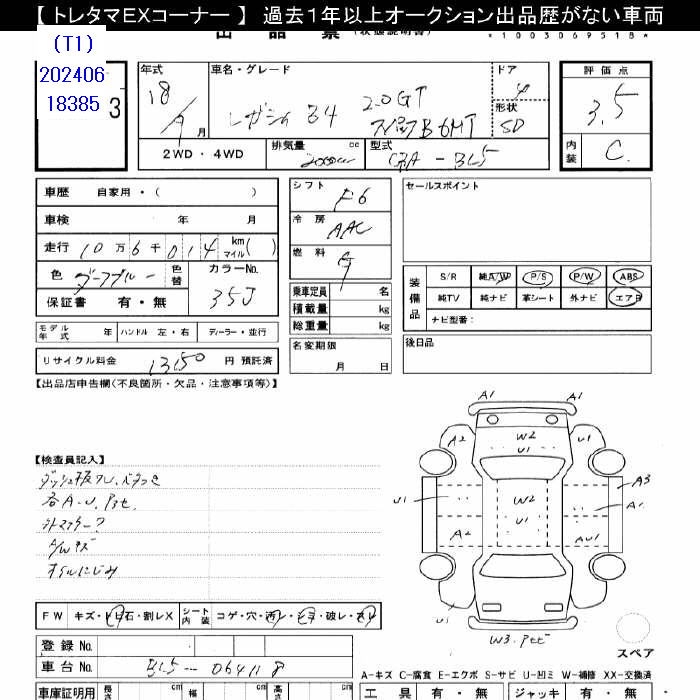 【 トレタマEXコーナー 】 過去1年以上オークション出品歴がない車両
(T1)
202406
18385
3
*1003069518*
年式 18 月
車名・グレード レガシィ B4 2.0GT スペックB 6MT
ドア 4
形状 SD
評価点 3.5
内装 C
2WD・4WD
排気量 2000 cc
型式 CBA-BL5
車歴 自家用・( )
車検 年 月
走行 10万6千014 km マイル( )
色
色替
カラーNo. 35J
保証書 有・無
モデル年式 年 ハンドル 左・右 ディーラー・並行
リサイクル料金 13150 円 預託済
シフト F6
冷房 AAC
燃料 G
乗車定員 名
積載量 kg
総重量 kg
名変期限 月 日
セールスポイント
装備品
S/R 純A/W P/S P/W ABS
純TV 純ナビ 革シート 外ナビ エアB
ナビ型番:
後日品
【出品店申告欄(不良箇所・欠品・注意事項等)】
【検査員記入】
各A.U.
A/Wキズ
オイルにじみ
A1
A1
A2
W2
U1
U1
W2
U1
A3
A1
A2
AU1
U1
U1
W3.
スペア
FW キズ・トビ石・割レX シート内装 コゲ・穴・汚レ・シミ・破レ・スレ
登録No.
車台No. BL5-064118
A-キズ C-腐食 E-エクボ S-サビ U-凹ミ W-補修 XX-交換済
車庫証明用 長さ cm 幅 cm 高さ cm
工具 有・無 ジャッキ 有・無